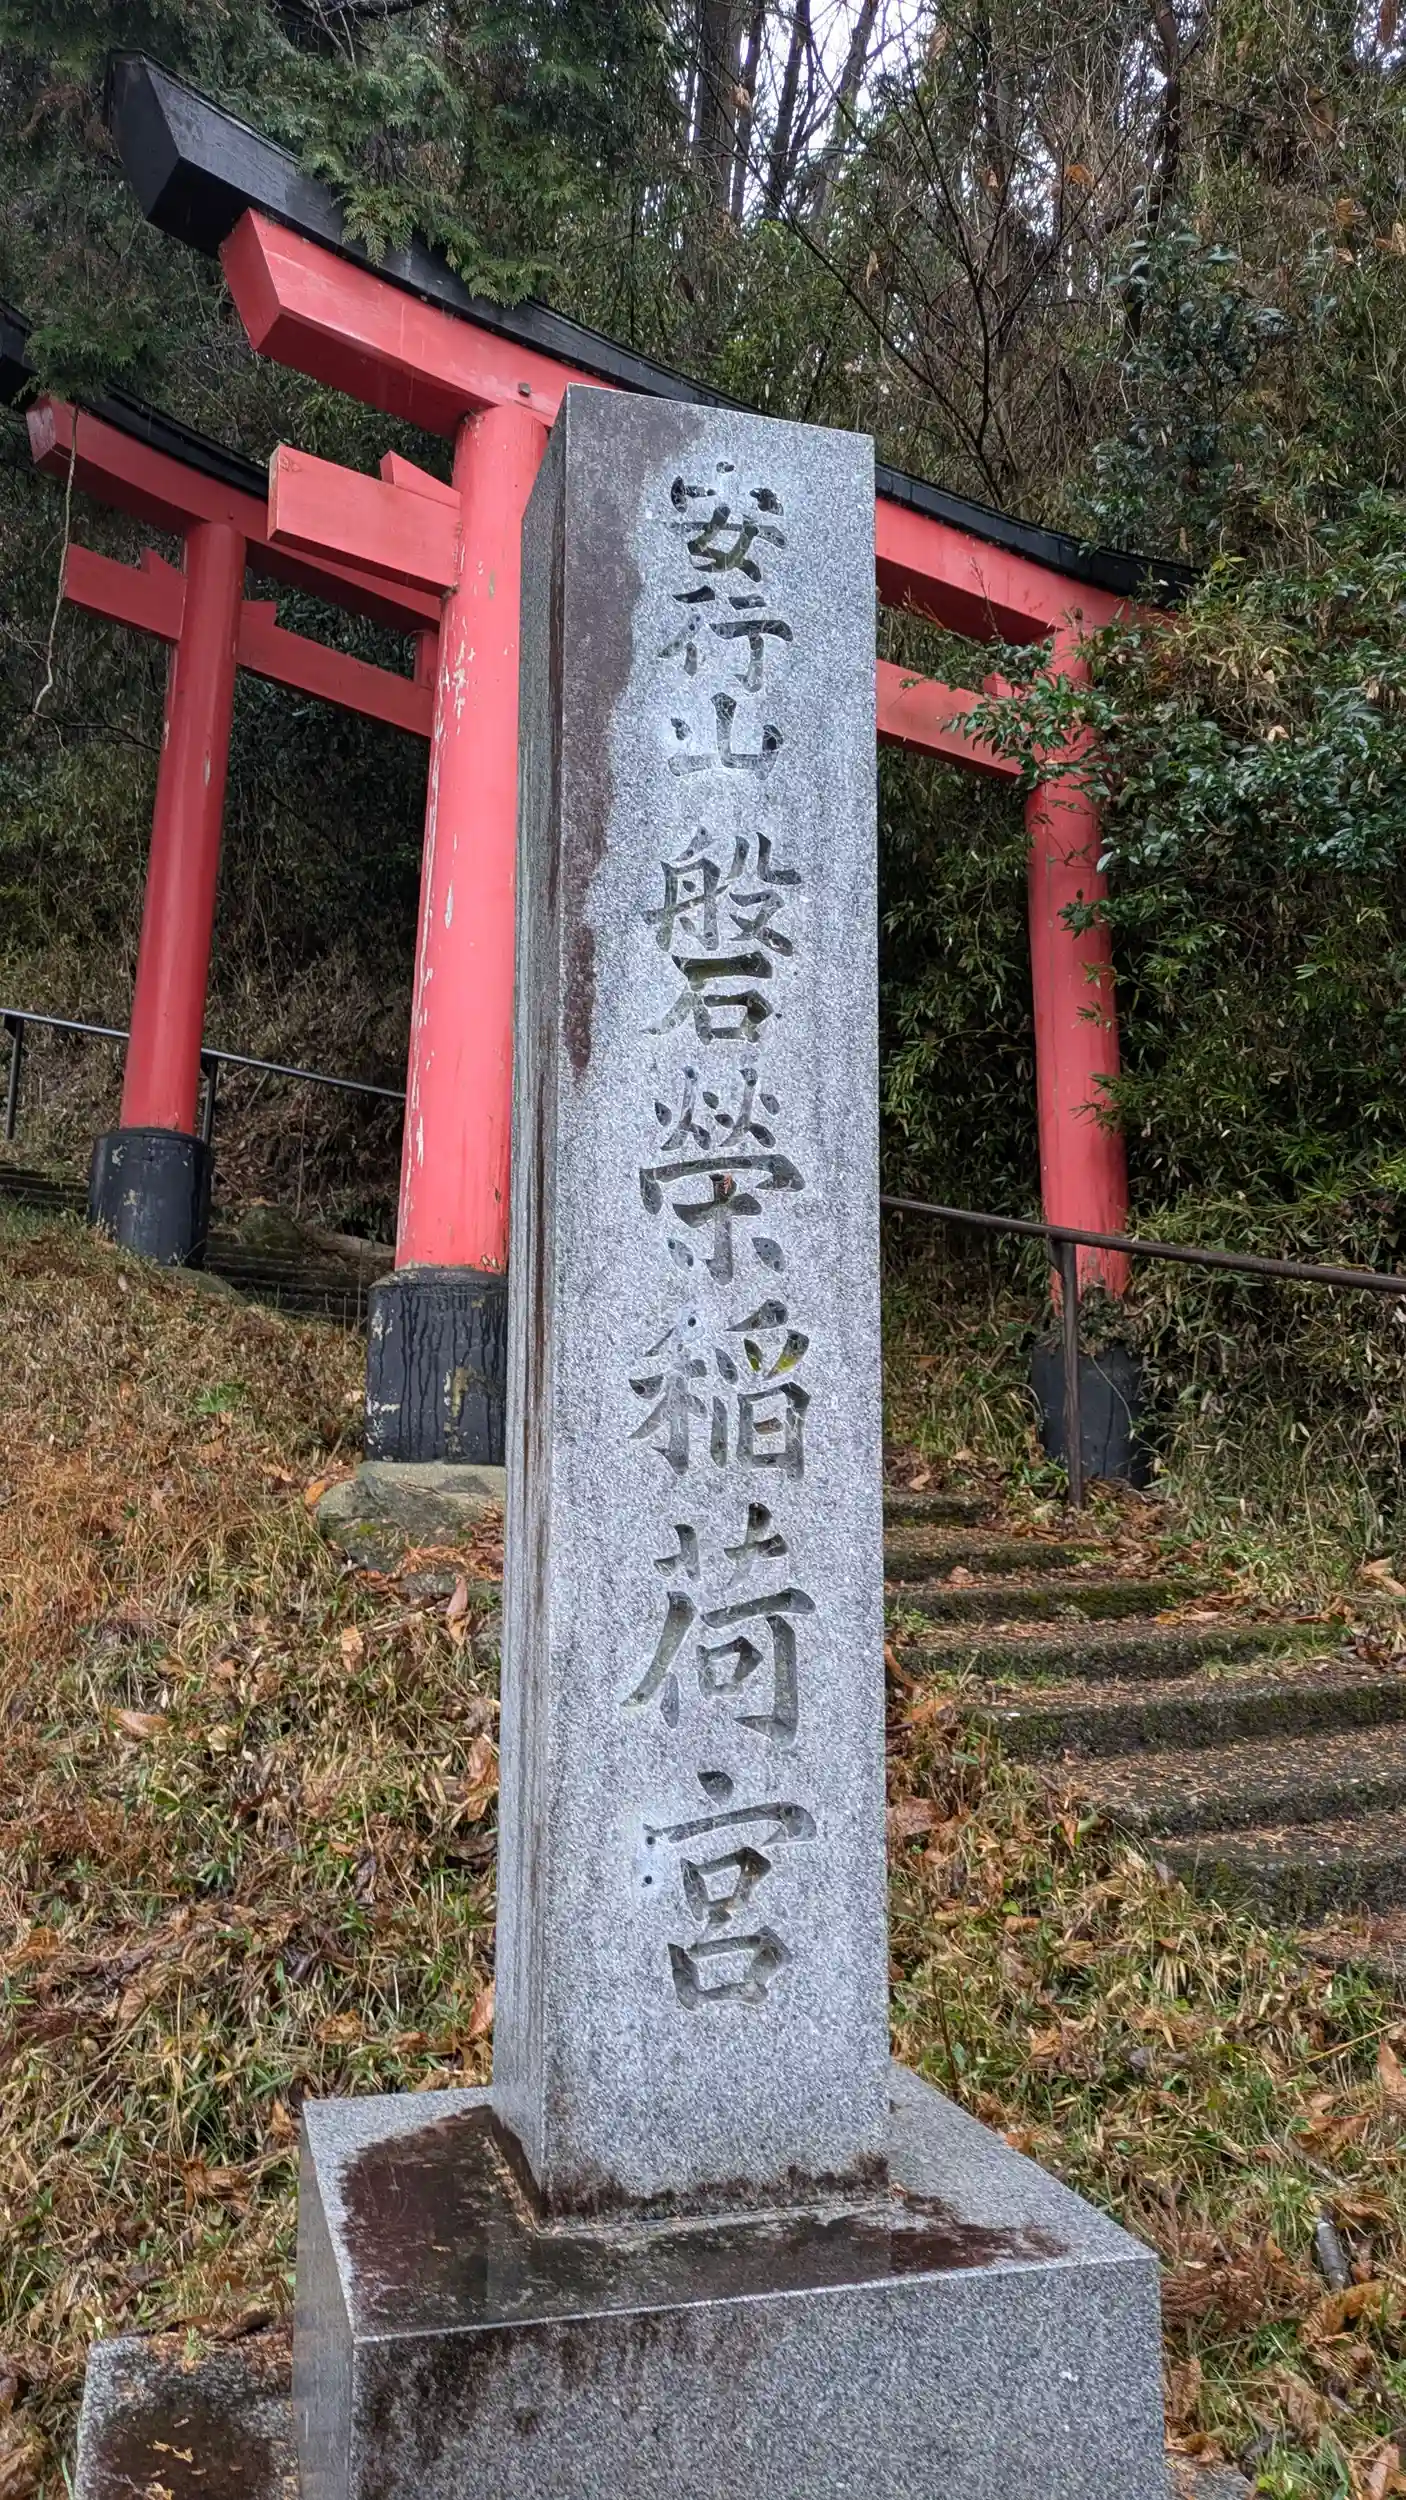 安行山 磐栄稲荷宮